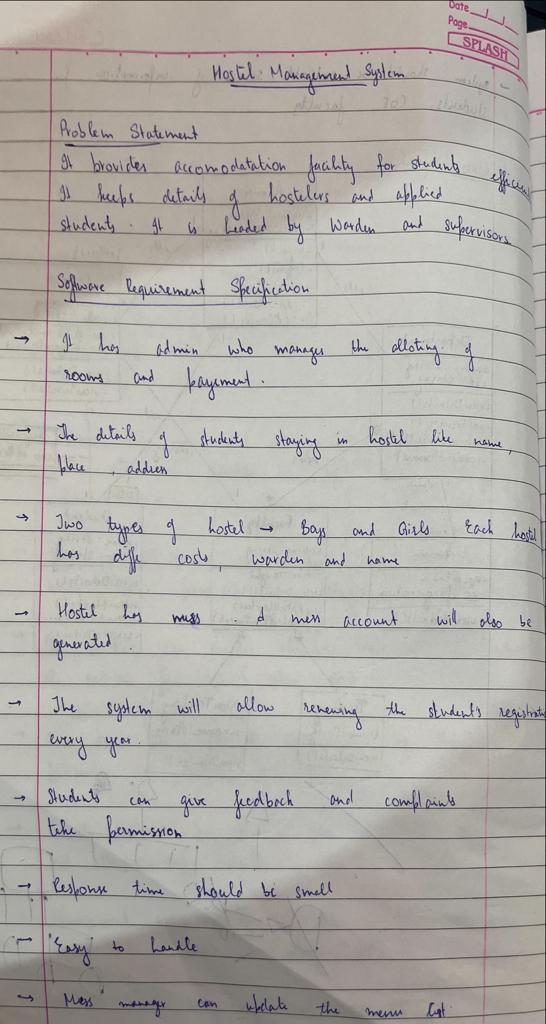 Date
Page
SPLASH
Hostel Management System
Problem Statement
It provides accomodatation facility for students
It keeps details of hostelers and applied
students. It is headed by Warden and supervisors
Software Requirement Specification
→ It has admin who manages the alloting of
rooms and payement.
→ The details of students staying in hostel like name,
place, address
→ Two types of hostel → Boys and Girls Each hostel
has diffe costs, warden and name
→ Hostel has mess. & mess account will also be
generated.
→ The system will allow renewing the student's
every year.
→ Students can give feedback and complaints
take permission
→ Response time should be small
→ "Easy" to handle
→ Mess manager can update the menu list.